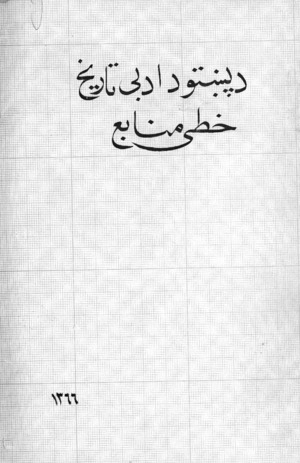 د پښتو د ادبي تاریخ
خطي منابع
۱۳۶۶